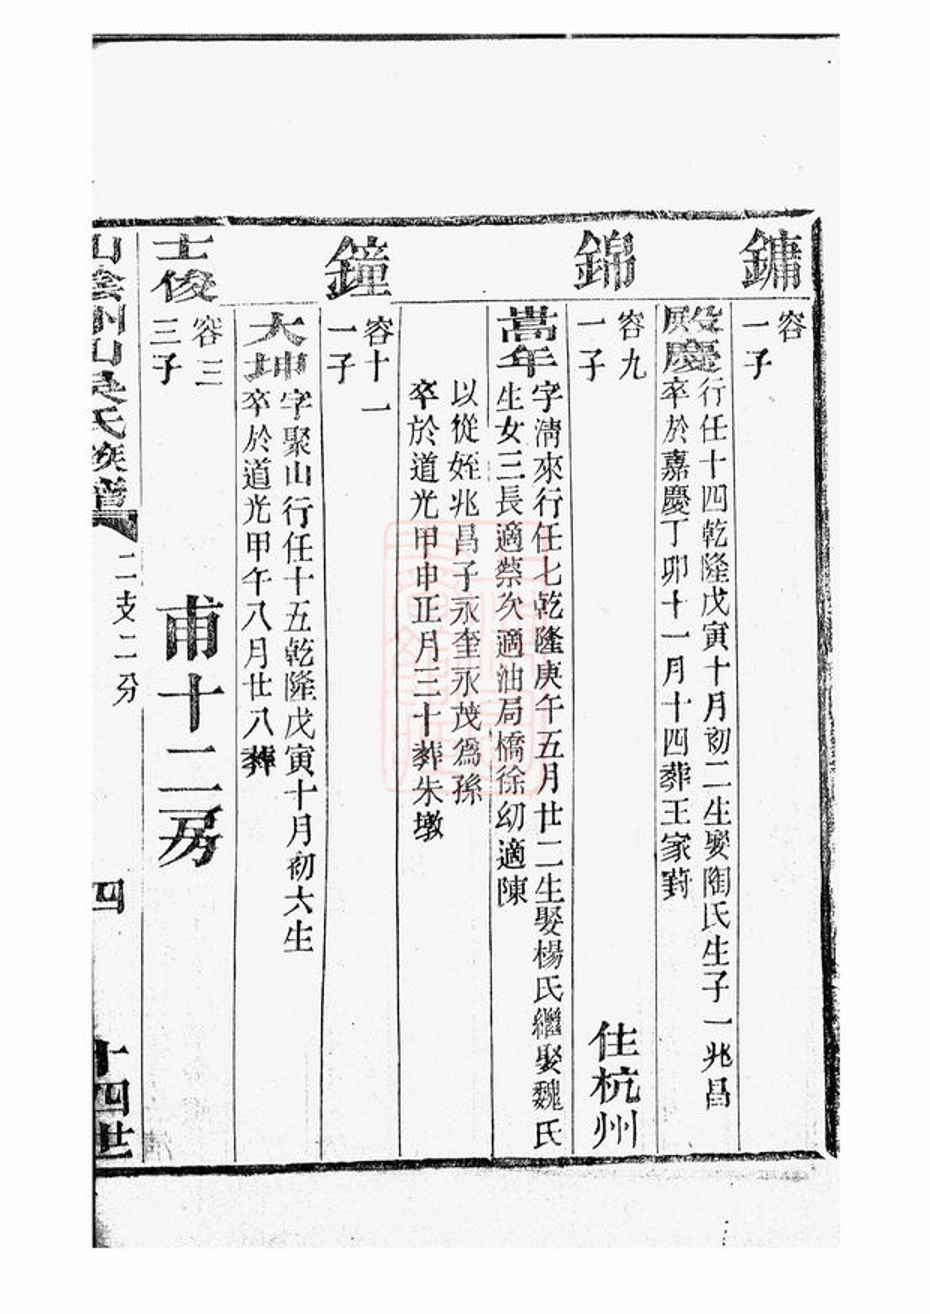 鏞
容
一子
殿慶
行任十四乾隆戊寅十月初二生娶陶氏生子一兆昌
卒於嘉慶丁卯十一月十四葬王家葑
錦
容九
一子
住杭州
嵩年
字清來行任七乾隆庚午五月廿二生娶楊氏繼娶魏氏
生女三長適蔡次適油局橋徐幼適陳
以從姪兆昌子永奎永茂爲孫
卒於道光甲申正月三十葬朱墩
鐘
容十一
一子
大坤
字聚山行任十五乾隆戊寅十月初六生
卒於道光甲午八月廿八葬
士俊
容三
三子
甫十二房
山陰州山吳氏族譜
二支二分
四
十四世